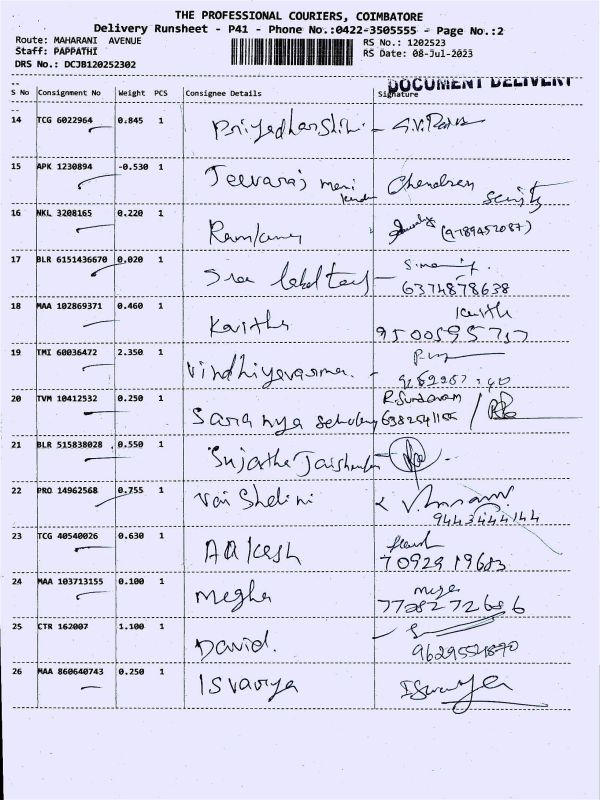 THE PROFESSIONAL COURIERS, COIMBATORE
Delivery Runsheet - P41 - Phone No.:0422-3505555 - Page No.:2
Route: MAHARANI AVENUE
Staff: PAPPATHI
DRS No.: DCJB120252302
RS No.: 1202523
RS Date: 08-Jul-2023
DOCUMENT DELIVERY
S No Consignment No Weight PCS Consignee Details Signature
14 TCG 6022964 0.845 1
Priyadharshini
15 APK 1230894 -0.530 1
Jeevaraj mani
Chandran
16 NKL 3208165 0.220 1
(9789452087)
17 BLR 6151436670 0.020 1
Sree
6374878638
18 MAA 102869371 0.460 1
Kavitha
19 TMI 60036472 2.350 1
Vindhiyavarma
20 TVM 10412532 0.250 1
Saranya
R.Sundaram
21 BLR 515838028 0.550 1
Sujatha
22 PRO 14962568 0.755 1
Vai Shalini
9443444144
23 TCG 40540026 0.630 1
AAkash
7092919683
24 MAA 103713155 0.100 1
Megha
7738272686
25 CTR 162007 1.100 1
David.
26 MAA 860640743 0.250 1
Isvarya
Iswarya